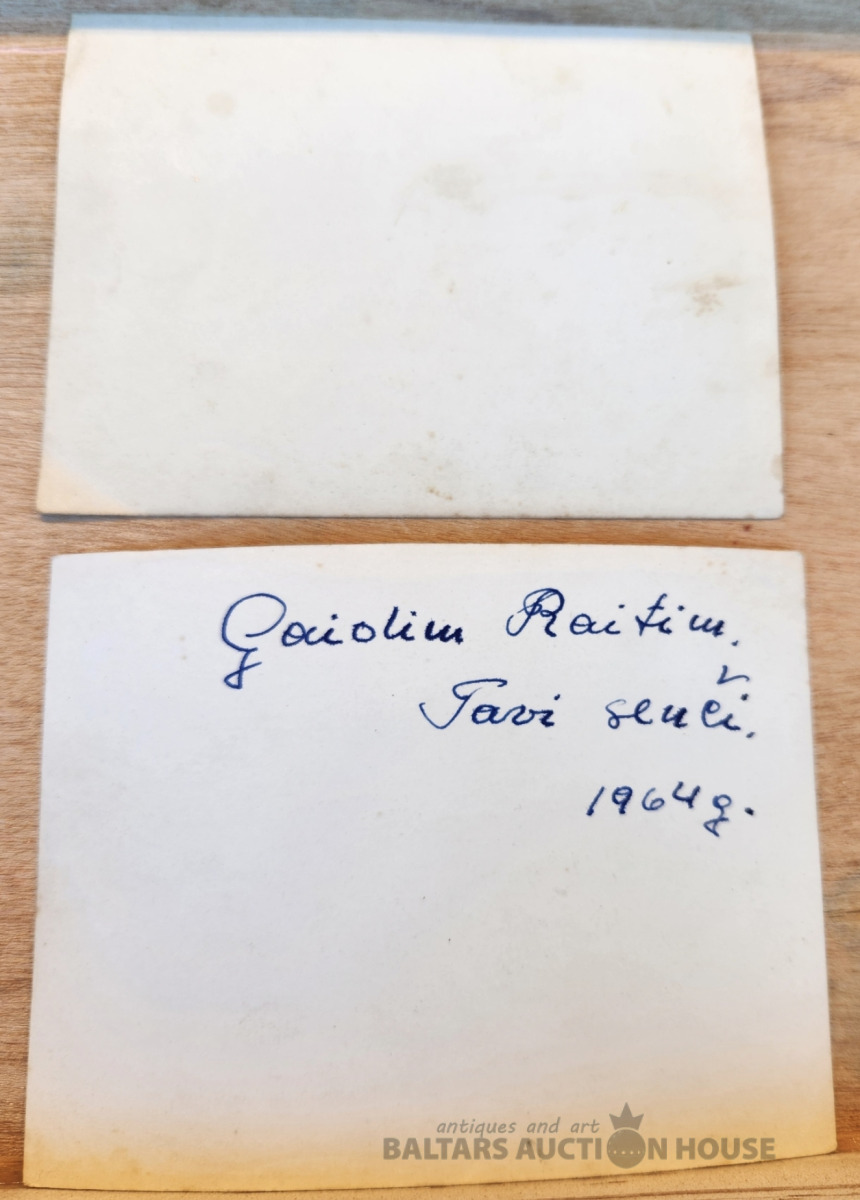 Gaidim Raitim.
Tavi senči.
1964 g.
antiques and art
BALTARS AUCTION HOUSE